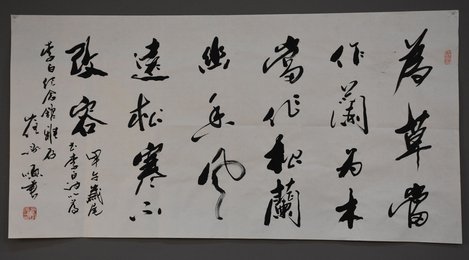 為草當
作蘭為木
當作松蘭
幽香風
遠松寒不
改容
甲午歲尾
書李白詩為
李白纪念館雅存